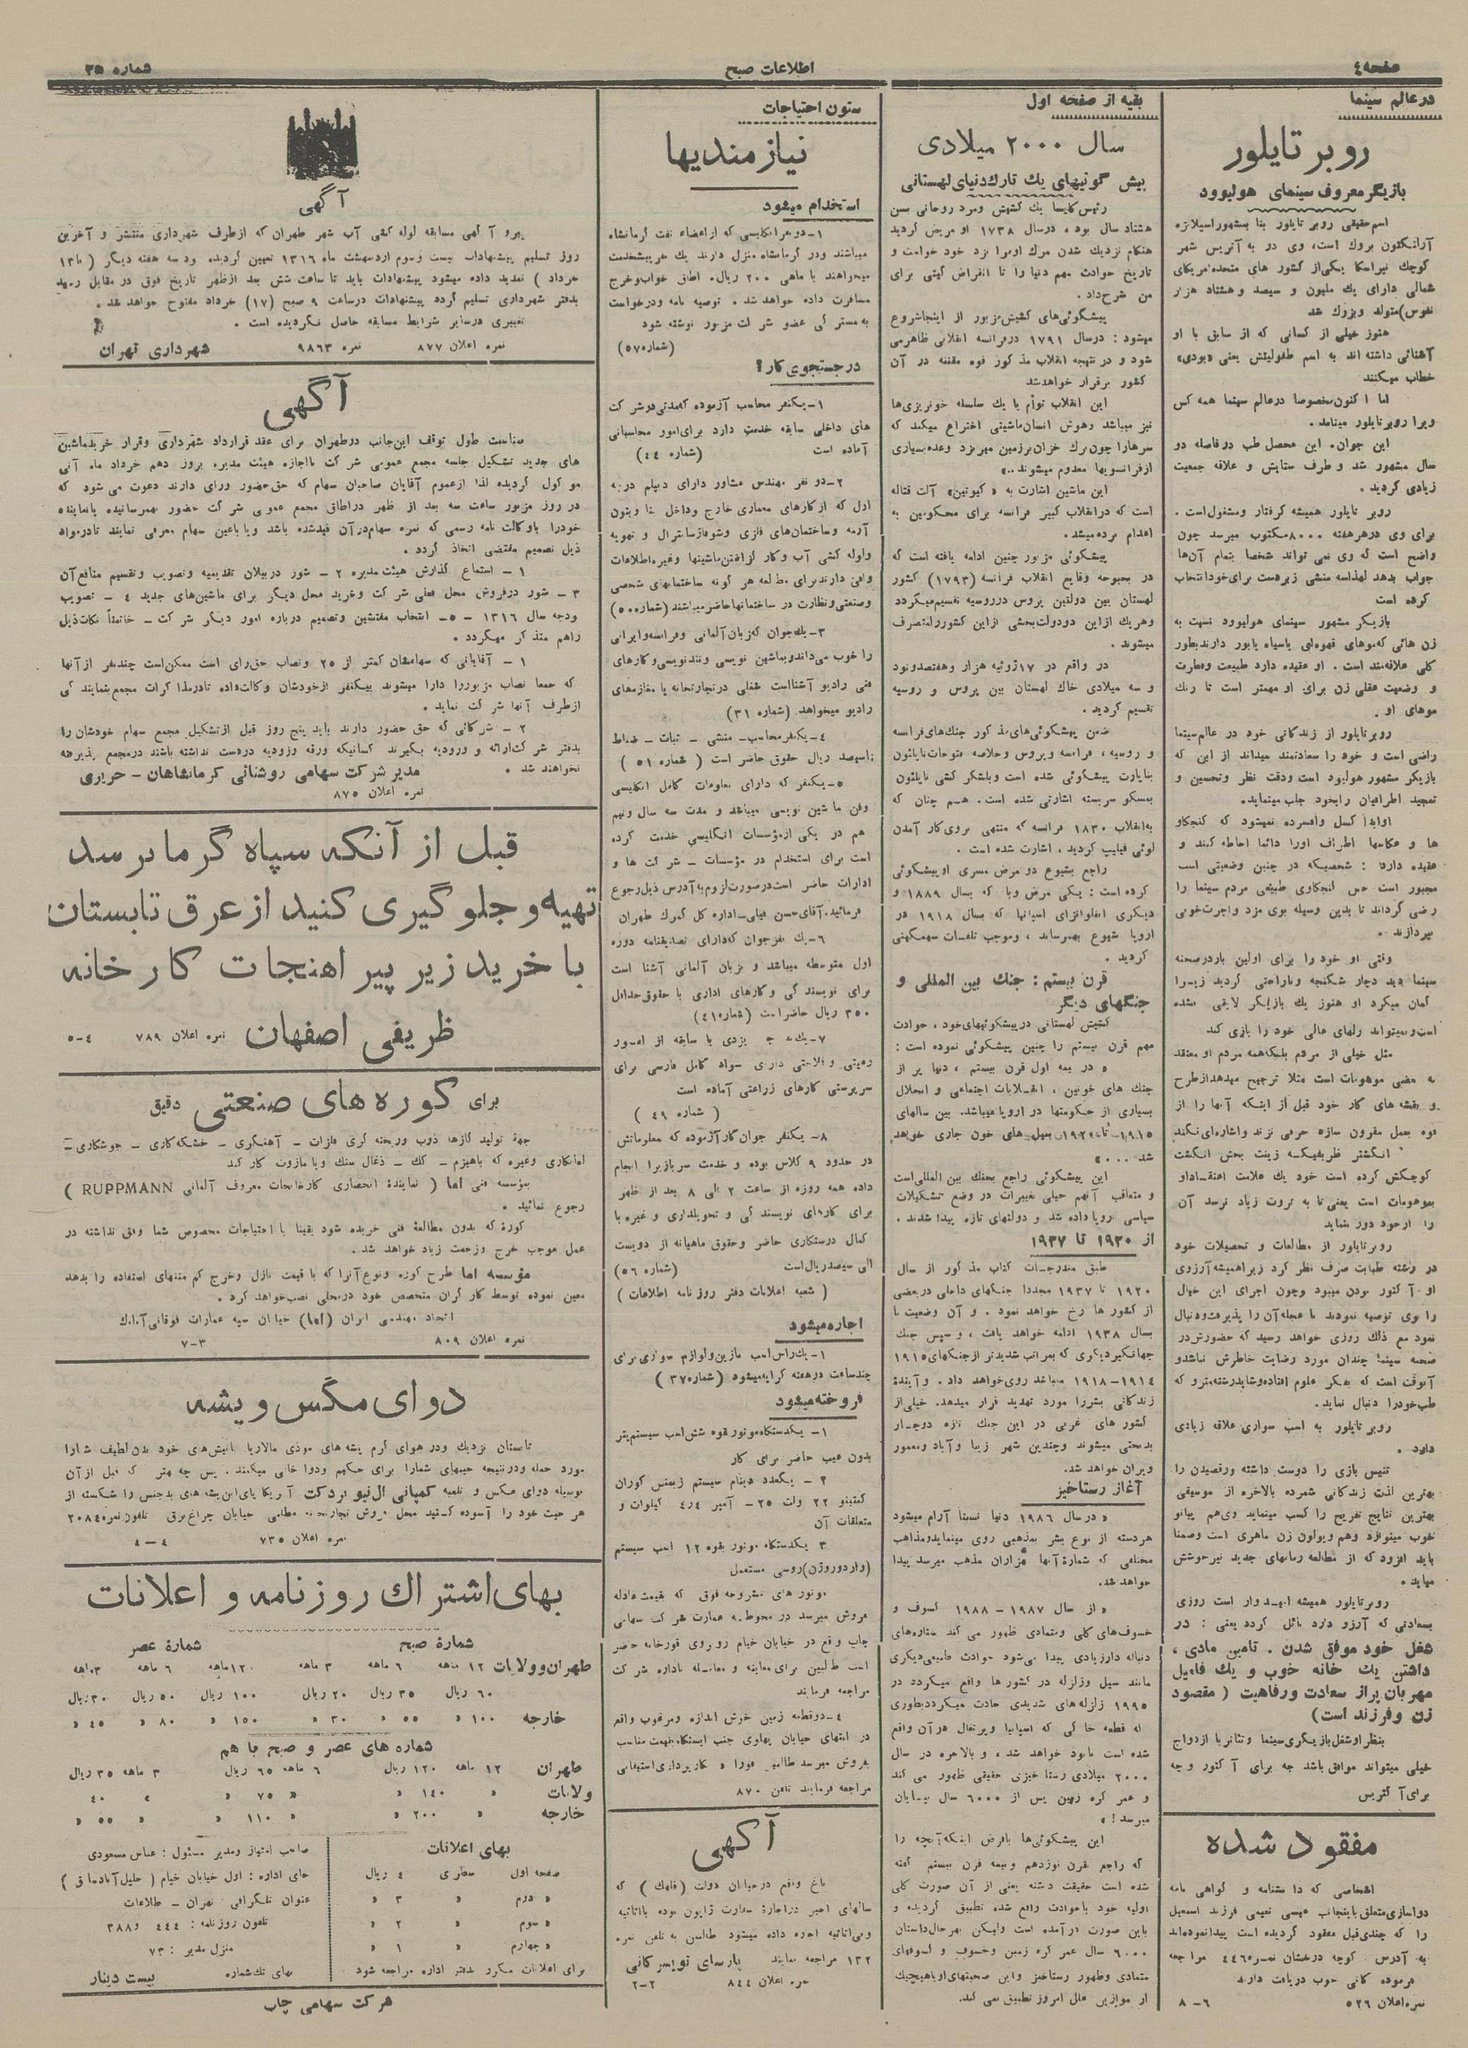 صفحه ٤
اطلاعات صبح
شماره ٣٥
در عالم سینما
روبر تایلور
بازیگر معروف سینمای هولیوود
اسم حقیقی روبر تایلور بنا بمشهور اسپلانژه
آرلنگتون بروك است، وی در به آتریس شهر
کوچك نبراسکا یکی از کشور های متحده امریکای
شمالی دارای یك ملیون و سیصد و هشتاد هزار
نفوس) متولد و بزرك شد
هنوز خیلی از کسانی که از سابق با او
آشنائی داشته اند به اسم طفولیتش یعنی «بودی»
خطاب میکنند
اما اکنون مخصوصا در عالم سینما همه کس
ویرا روبر تایلور مینامد.
این جوان، این محصل طب در فاصله دو
سال مشهور شد و طرف ستایش و علاقه جمعیت
زیادی گردید.
روبر تایلور همیشه گرفتار و مشغول است.
برای وی در هر هفته ٨٠٠٠ مکتوب میرسد چون
واضح است که وی نمی تواند شخصا بتمام آن‌ها
جواب بدهد لهذا سه منشی زبردست برای خود انتخاب
کرده است
بازیگر مشهور سینمای هولیوود نسبت به
زن هائی که موهای قهوه‌ای یا سیاه یا بور دارند بطور
کلی علاقه‌مند است. او عقیده دارد طبیعت و فطرت
و وضعیت عقلی زن برای او مهمتر است تا رنك
موهای او.
روبر تایلور از زندگانی خود در عالم سینما
راضی است و خود را سعادتمند میداند از این که
بازیگر مشهور هولیود است ودقت نظر و تحسین و
تمجید اطرافیان را بخود جلب مینماید.
او ابدا کسل و افسرده نمیشود که کنجکاو
ها و عکاسها اطراف او را دائما احاطه کنند و
عقیده دارد: شخصیکه در چنین وضعیتی است
مجبور است حس کنجکاوی طبیعی مردم سینما را
راضی گرداند تا بدین وسیله بوی مزد و اجرت خوبی
بپردازند.
وقتی او خود را برای اولین بار در صحنه
سینما دید دچار شکنجه و ناراحتی گردید زیرا
گمان میکرد او هنوز یك بازیگر لایقی نشده
است و نمیتواند رلهای عالی خود را بازی کند
مثل خیلی از مردم بلکه همه مردم او معتقد
به بعضی موهومات است مثلا ترجیح میدهد از طرح
و نقشه های کار خود قبل از اینکه آنها را از
قوه بعمل مقرون سازد حرفی نزند و اشاره‌ای نکند
انگشتر ظریفیکه زینت بخش انگشت
کوچکش کرده است خود یك علامت اعتقاد او
بموهومات است یعنی تا به ثروت زیاد نرسد آن
را از خود دور ننماید
روبر تایلور از مطالعات و تحصیلات خود
در رشته طبابت صرف نظر کرد زیرا همیشه آرزوی
او آکتور بودن میبود وچون اجرای این خیال
را بوی توصیه نمودند با عجله آن را پذیرفت و دنبال
نمود مع ذلك روزی خواهد رسید که حضورش در
صحنه سینما چندان مورد رضایت خاطرش نباشد و
آنوقت است که بفکر علوم افتاده و شاید رشته متروکه
طب خود را دنبال نماید.
روبر تایلور به اسب سواری علاقه زیادی
دارد.
تنیس بازی را دوست داشته و رقصیدن را
بهترین لذت زندگانی شمرده بالاخره از موسیقی
بهترین نتایج تفریح را کسب مینماید وی هم پیانو
خوب مینوازد وهم ویولون زن ماهری است وضمنا
باید افزود که از مطالعه رمانهای جدید نیز خوشش
میاید.
روبر تایلور همیشه امیدوار است روزی
بسعادتی که آرزو دارد نائل گردد یعنی: در
شغل خود موفق شدن. تامین مادی،
داشتن یك خانه خوب و یك فامیل
مهربان پر از سعادت و رفاهیت (مقصود
زن و فرزند است)
بنظر او شغل بازیگری سینما و تئاتر با ازدواج
خیلی میتواند موافق باشد چه برای آکتور و چه
برای آکتریس
مفقود شده
اشخاصی که دانشنامه و گواهی نامه
دواسازی متعلق باینجانب عیسی نعیمی فرزند اسمعیل
را که چندی قبل مفقود گردیده است پیدا نموده‌اند
به آدرس کوچه درخشان نمره ٤٤٦ مراجعه
فرموده مژدگانی خوب دریافت دارند
نمره اعلان ٥٢٦ ٦-٨
بقیه از صفحه اول
سال ٢٠٠٠ میلادی
پیش گوئیهای یك تارك دنیای لهستانی
رئیس کلیسا یك کشیش و مرد روحانی بسن
هشتاد سال بود، در سال ١٧٣٨ او مریض گردید
هنگام نزدیك شدن مرك اوامر را نزد خود خواست و
تاریخ حوادث مهم دنیا را تا انقراض گیتی برای
من شرح داد.
پیشگوئی‌های کشیش مزبور از اینجا شروع
میشود: در سال ١٧٩١ در فرانسه انقلابی ظاهر می
شود و در نتیجه انقلاب مذکور قوه مقننه در آن
کشور برقرار خواهد شد
این انقلاب توأم با یك سلسله خونریزی‌ها
نیز میباشد و هوش انسان ماشینی اختراع میکند که
سرها را چون برك خزان بر زمین میریزد و عده بسیاری
از فرانسویها معدوم میشوند..»
این ماشین اشارت به «گیوتین» آلت قتاله
است که در انقلاب کبیر فرانسه برای محکومین به
اعدام برده میشد.
پیشگوئی مزبور چنین ادامه یافته است که
در بحبوحه وقایع انقلاب فرانسه (١٧٩٣) کشور
لهستان بین دولتین پروس و روسیه تقسیم میگردد
و هریك از این دو دولت بخشی از این کشور را متصرف
میشوند.
در واقع در ١٧ ژوئیه هزار و هفتصد و نود
و سه میلادی خاك لهستان بین پروس و روسیه
تقسیم گردید.
ضمن پیشگوئی‌های مذکور جنك‌های فرانسه
و روسیه، فرانسه و پروس و خلاصه فتوحات ناپلئون
بناپارت پیشگوئی شده است و بلشکر کشی ناپلئون
بمسکو سربسته اشارتی شده است. همچنان که
به انقلاب ١٨٣٠ فرانسه که منتهی بروی کار آمدن
لوئی فیلیپ گردید، اشارت شده است.
راجع بشیوع دو مرض مسری او پیشگوئی
کرده است: یکی مرض وبا که بسال ١٨٨٩ و
دیگری انفلوانزای اسپانیا که بسال ١٩١٨ در
اروپا شیوع بهمرساند، وموجب تلفات سهمگینی
گردید.
قرن بیستم: جنك بین المللی و
جنگهای دیگر
کشیش لهستانی در پیشگوئیهای خود، حوادث
مهم قرن بیستم را چنین پیشگوئی نموده است:
« در نیمه اول قرن بیستم، دنیا پر از
جنك های خونین، انقلابات اجتماعی و انحلال
بسیاری از حکومتها در اروپا میباشد. بین سالهای
١٩١٥ تا ١٩٢٠ سیل های خون جاری خواهد
شد ...»
این پیشگوئی راجع بجنك بین المللی است
و متعاقب آنهم خیلی تغییرات در وضع تشکیلات
سیاسی اروپا داده شد و دولتهای تازه پیدا شدند.
از ١٩٢٠ تا ١٩٣٧
طبق مندرجات کتاب مذکور از سال
١٩٢٠ تا ١٩٣٧ مجددا جنگهای داخلی در بعضی
از کشور ها رخ خواهد نمود. و آن وضعیت تا
بسال ١٩٣٨ ادامه خواهد یافت، و سپس جنك
جهانگیر دیگری که بمراتب شدیدتر از جنگهای ١٩١٥
١٩١٤-١٩١٨ میباشد روی خواهد داد. و آیندهٔ
زندگانی بشر را مورد تهدید قرار میدهد. خیلی از
کشور های غربی در این جنك تازه دوچار
بدبختی میشوند و چندین شهر زیبا و آباد و معمور
ویران خواهد شد.
آغاز رستاخیز
« در سال ١٩٨٦ دنیا نسبتا آرام میشود
هر دسته از نوع بشر بمذهبی روی مینماید و مذاهب
مختلفی که شمارهٔ آنها بهزاران مذهب میرسد پیدا
خواهد شد.
« از سال ١٩٨٧ - ١٩٨٨ کسوف و
خسوف‌های کلی و متمادی ظهور می کند ستاره‌های
دنباله دار زیادی پیدا می‌شود حوادث طبیعی دیگری
مانند سیل و زلزله در کشور ها واقع میگردد در
١٩٩٥ زلزله‌های شدیدی حادث میگردد بطوری
که قطعه خاکی که اسپانیا و پرتغال در آن واقع
شده است نابود خواهد شد، و بالاخره در سال
٢٠٠٠ میلادی رستاخیزی حقیقی ظهور می کند
و عمر کره زمین پس از ٦٠٠٠ سال بپایان
میرسد!»
این پیشگوئی‌ها با فرض اینکه آنچه را
که راجع بقرن نوزدهم و نیمه قرن بیستم گفته
شده است حقیقت داشته یعنی از آن صورت کلی
اولیه خود با حوادث واقع شده تطبیق گردیده و
باین صورت در آمده است ولیکن بهرحال داستان
٦٠٠٠ سال عمر کره زمین و خسوف و کسوفهای
متمادی و ظهور رستاخیز و این صحبتهای او با هیچیك
از موازین عالم امروز تطبیق نمی کند.
ستون احتیاجات
نیازمندیها
استخدام میشود
١- دو نفر انگلیسی که از اعضاء نفت کرمانشاه
میباشند و در کرمانشاه منزل دارند یك نفر پیشخدمت
میخواهند با ماهی ٢٠٠ ریال. اطاق خواب و خرج
مسافرت داده خواهد شد. توصیه نامه و درخواست
به مستر لی عضو شرکت مزبور نوشته شود
(شماره ٥٧)
در جستجوی کار؟
١- یکنفر محاسب آزموده که مدتی در شرکت
های داخلی سابقه خدمت دارد برای امور محاسباتی
آماده است (شماره ٤٤)
٢- دو نفر مهندس مشاور دارای دیپلم درجه
اول که از کارهای معماری خارج و داخل بنا و بتون
آرمه و ساختمان‌های فلزی و شوفاژ سانترال و تهویه
و لوله کشی آب و کار گذاشتن ماشینها و غیره اطلاعات
وافی دارند برای مطالعه هر گونه ساختمانهای شخصی
و صنعتی و نظارت در ساختمانها حاضر میباشند (شماره ٥٠٠)
٣- یك جوان که زبان آلمانی و فرانسه و ایرانی
را خوب می‌داند و بماشین نویسی و تند نویسی و کارهای
فنی رادیو آشنا است شغلی در تجارتخانه یا مغازه‌های
رادیو میخواهد (شماره ٣١)
٤- یکنفر محاسب - منشی - ثبات - ضباط
با سیصد ریال حقوق حاضر است (شماره ٥١)
٥- یکنفر که دارای معلومات کامل انگلیسی
و فن ماشین نویسی میباشد و مدت سه سال و نیم
هم در یکی از مؤسسات انگلیسی خدمت کرده
است برای استخدام در مؤسسات - شرکت ها و
ادارات حاضر است در صورت لزوم به آدرس ذیل رجوع
فرمائید. آقای حسن فیلی - اداره کل گمرك طهران
٦- یك نفر جوان که دارای تصدیقنامه دوره
اول متوسطه میباشد و بزبان آلمانی آشنا است
برای نویسندگی و کارهای اداری با حقوق حداقل
٣٥٠ ریال حاضر است (شماره ٤١)
٧- یك نفر یزدی با سابقه از امور
رعیتی و فلاحتی دارای سواد کامل فارسی برای
سرپرستی کارهای زراعتی آماده است
(شماره ٤٩)
٨- یکنفر جوان کارآزموده که معلوماتش
در حدود ٩ کلاس بوده و خدمت سربازی را انجام
داده همه روزه از ساعت ٢ الی ٨ بعد از ظهر
برای کارهای نویسندگی و تحویلداری و غیره با
کمال درستکاری حاضر و حقوق ماهیانه از دویست
الی سیصد ریال است (شماره ٥٦)
(شعبه اعلانات دفتر روزنامه اطلاعات)
اجاره میشود
١- یك راس اسب با زین و لوازم سواری برای
چند ساعت در هفته کرایه میشود (شماره ٣٧)
فروخته میشود
١- یکدستگاه موتور بقوه شش اسب سیستم پتر
بدون عیب حاضر برای کار
٢- یکعدد دینام سیستم زیمنس کوران
کنتینو ٢٢ وات ٢٥- آمپر ٤٫٤ کیلوات و
متعلقات آن
٣ یکدستگاه موتور بقوه ١٢ اسب سیستم
(واردوروژن) روسی مستعمل
موتور های مشروحه فوق که بقیمت عادله
بفروش میرسد در محوطه عمارت شرکت سهامی
چاپ واقع در خیابان خیام روبروی قورخانه حاضر
است طالبین برای معاینه و معامله باداره شرکت
مراجعه فرمایند
٤- دو قطعه زمین خوش اندازه و مرغوب واقع
در انتهای خیابان پهلوی جنب ایستگاه بقیمت مناسب
بفروش میرسد طالبین فورا به کارپردازی
مراجعه فرمایند تلفن ٨٧٠
آگهی
باغ واقع در خیابان دولت (قلهك) که
سالهای اخیر در اجاره سفارت ژاپون بوده با اثاثیه
و بی اثاثیه اجاره داده میشود طالبین به تلفن نمره
١٣٢ مراجعه نمایند پارسای تویسرکانی
نمره اعلان ٨٤٤ ٢-٢
آگهی
پیرو آگهی مسابقه لوله کشی آب شهر طهران که از طرف شهرداری منتشر و آخرین
روز تسلیم پیشنهادات بیست و سوم اردیبهشت ماه ١٣١٦ تعیین گردیده بود سه هفته دیگر (تا ١٣
خرداد) تمدید داده میشود پیشنهادات باید تا ساعت شش بعد از ظهر تاریخ فوق در مقابل رسید
بدفتر شهرداری تسلیم گردد پیشنهادات در ساعت ٩ صبح (١٧) خرداد مفتوح خواهد شد.
تغییری در سایر شرایط مسابقه حاصل نگردیده است.
نمره اعلان ٨٧٧ نمره ٩٨٦٣ شهرداری تهران
آگهی
بمناسبت طول توقف این‌جانب در طهران برای عقد قرارداد شهرداری و قرار خرید ماشین
های جدید تشکیل جلسه مجمع عمومی شرکت با اجازه هیئت مدیره بروز دهم خرداد ماه آتی
موکول گردیده لذا از عموم آقایان صاحبان سهام که حق حضور و رای دارند دعوت می شود که
در روز مزبور ساعت سه بعد از ظهر در اطاق مجمع عمومی شرکت حضور بهمرسانیده یا نماینده
خود را با وکالت نامه رسمی که نمره سهام در آن قید شده باشد و یا با عین سهام معرفی نمایند تا در مواد
ذیل تصمیم مقتضی اتخاذ گردد.
١- استماع گذارش هیئت مدیره ٢- شور در بیلان تقدیمیه و تصویب و تقسیم منافع آن
٣- شور در فروش محل فعلی شرکت و خرید محل دیگر برای ماشین‌های جدید ٤- تصویب
بودجه سال ١٣١٦ - ٥- انتخاب مفتشین و تصمیم درباره امور دیگر شرکت - خاتمتاً نکات ذیل
را هم متذکر میگردد.
١- آقایانی که سهامشان کمتر از ٢٥ و نصاب حق رای است ممکن است چند نفر از آنها
که جمعا نصاب مزبور را دارا میشوند بیکنفر از خودشان وکالت داده تا در مذاکرات مجمع بنمایندگی
از طرف آنها شرکت نماید.
٢- شرکائی که حق حضور دارند باید پنج روز قبل از تشکیل مجمع سهام خودشان را
بدفتر شرکت ارائه و ورودیه بگیرند کسانیکه ورقه ورودیه در دست نداشته باشند در مجمع پذیرفته
نخواهند شد. مدیر شرکت سهامی روشنائی کرمانشاهان - حریری
نمره اعلان ٨٧٥
قبل از آنکه سپاه گرما برسد
تهیه و جلوگیری کنید از عرق تابستان
با خرید زیر پیراهنجات کارخانه
ظریفی اصفهان نمره اعلان ٧٨٩ ٤-٥
برای کوره های صنعتی دقیق
جهة تولید گازها ذوب و ریخته گری فلزات - آهنگری - خشکه‌کاری - جوشکاری -
لعابکاری و غیره که با هیزم - کك - ذغال سنك و یا مازوت کار کند
بمؤسسه فنی اما (نمایندهٔ انحصاری کارخانجات معروف آلمانی RUPPMANN)
رجوع نمائید.
کورهٔ که بدون مطالعهٔ فنی خریده شود یقینا با احتیاجات مخصوص شما وفق نداشته در
عمل موجب خرج و زحمت زیاد خواهد شد.
مؤسسه اما طرح کوره و نوع آنرا که با قیمت نازل و خرج کم منتهای استفاده را بدهد
معین نموده توسط کارگران متخصص خود در محل نصب خواهد کرد.
اتحاد مهندسی ایران (اما) خیابان سپه عمارات فوقانی آبانك
نمره اعلان ٨٠٩ ٣-٧
دوای مگس و پشه
تابستان نزدیك و در هوای گرم پشه های موذی مالاریا با نیش‌های خود بدن لطیف شما را
مورد حمله و در نتیجه جیبهای شما را برای حکیم و دوا خالی میکنند. پس چه بهتر که قبل از آن
بوسیله دوای مگس و تلمبه کمپانی ال‌نیو بردکت آمریکا پای این پشه های بدجنس را شکسته از
هر حیث خود را آسوده کنید محل فروش تجارتخانه مطلبی خیابان چراغ برق تلفون نمره ٢٠٨٤
نمره اعلان ٧٣٥ ٤-٤
بهای اشتراك روزنامه و اعلانات
شمارهٔ صبح شمارهٔ عصر
طهران و ولایات ١٢ ماهه ٦ ماهه ٣ ماهه ١٢ ماهه ٦ ماهه ٣ ماهه
٦٠ ریال ٣٥ ریال ٢٠ ریال ١٠٠ ریال ٥٠ ریال ٣٠ ریال
خارجه ١٠٠ « ٥٥ « ٣٠ « ١٥٠ « ٨٠ « ٤٥ «
شماره های عصر و صبح با هم
طهران ١٢ ماهه ١٢٠ ریال ٦ ماهه ٦٥ ریال ٣ ماهه ٣٥ ریال
ولایات « ١٤٠ « « ٧٥ « « ٤٠
خارجه « ٢٠٠ « « ١١٠ « « ٥٥ «
بهای اعلانات
صفحه اول سطری ٤ ریال
« دوم « ٣ «
« سوم « ٢ «
« چهارم « ١ «
برای اعلانات مکرر بدفتر اداره مراجعه شود
صاحب امتیاز و مدیر مسئول: عباس مسعودی
جای اداره: اول خیابان خیام (جلیل آباد سابق)
عنوان تلگرافی تهران - اطلاعات
تلفون روزنامه: ٤٤٤ و ٣٨٨
منزل مدیر: ٧٣
بهای تك شماره بیست دینار
شرکت سهامی چاپ